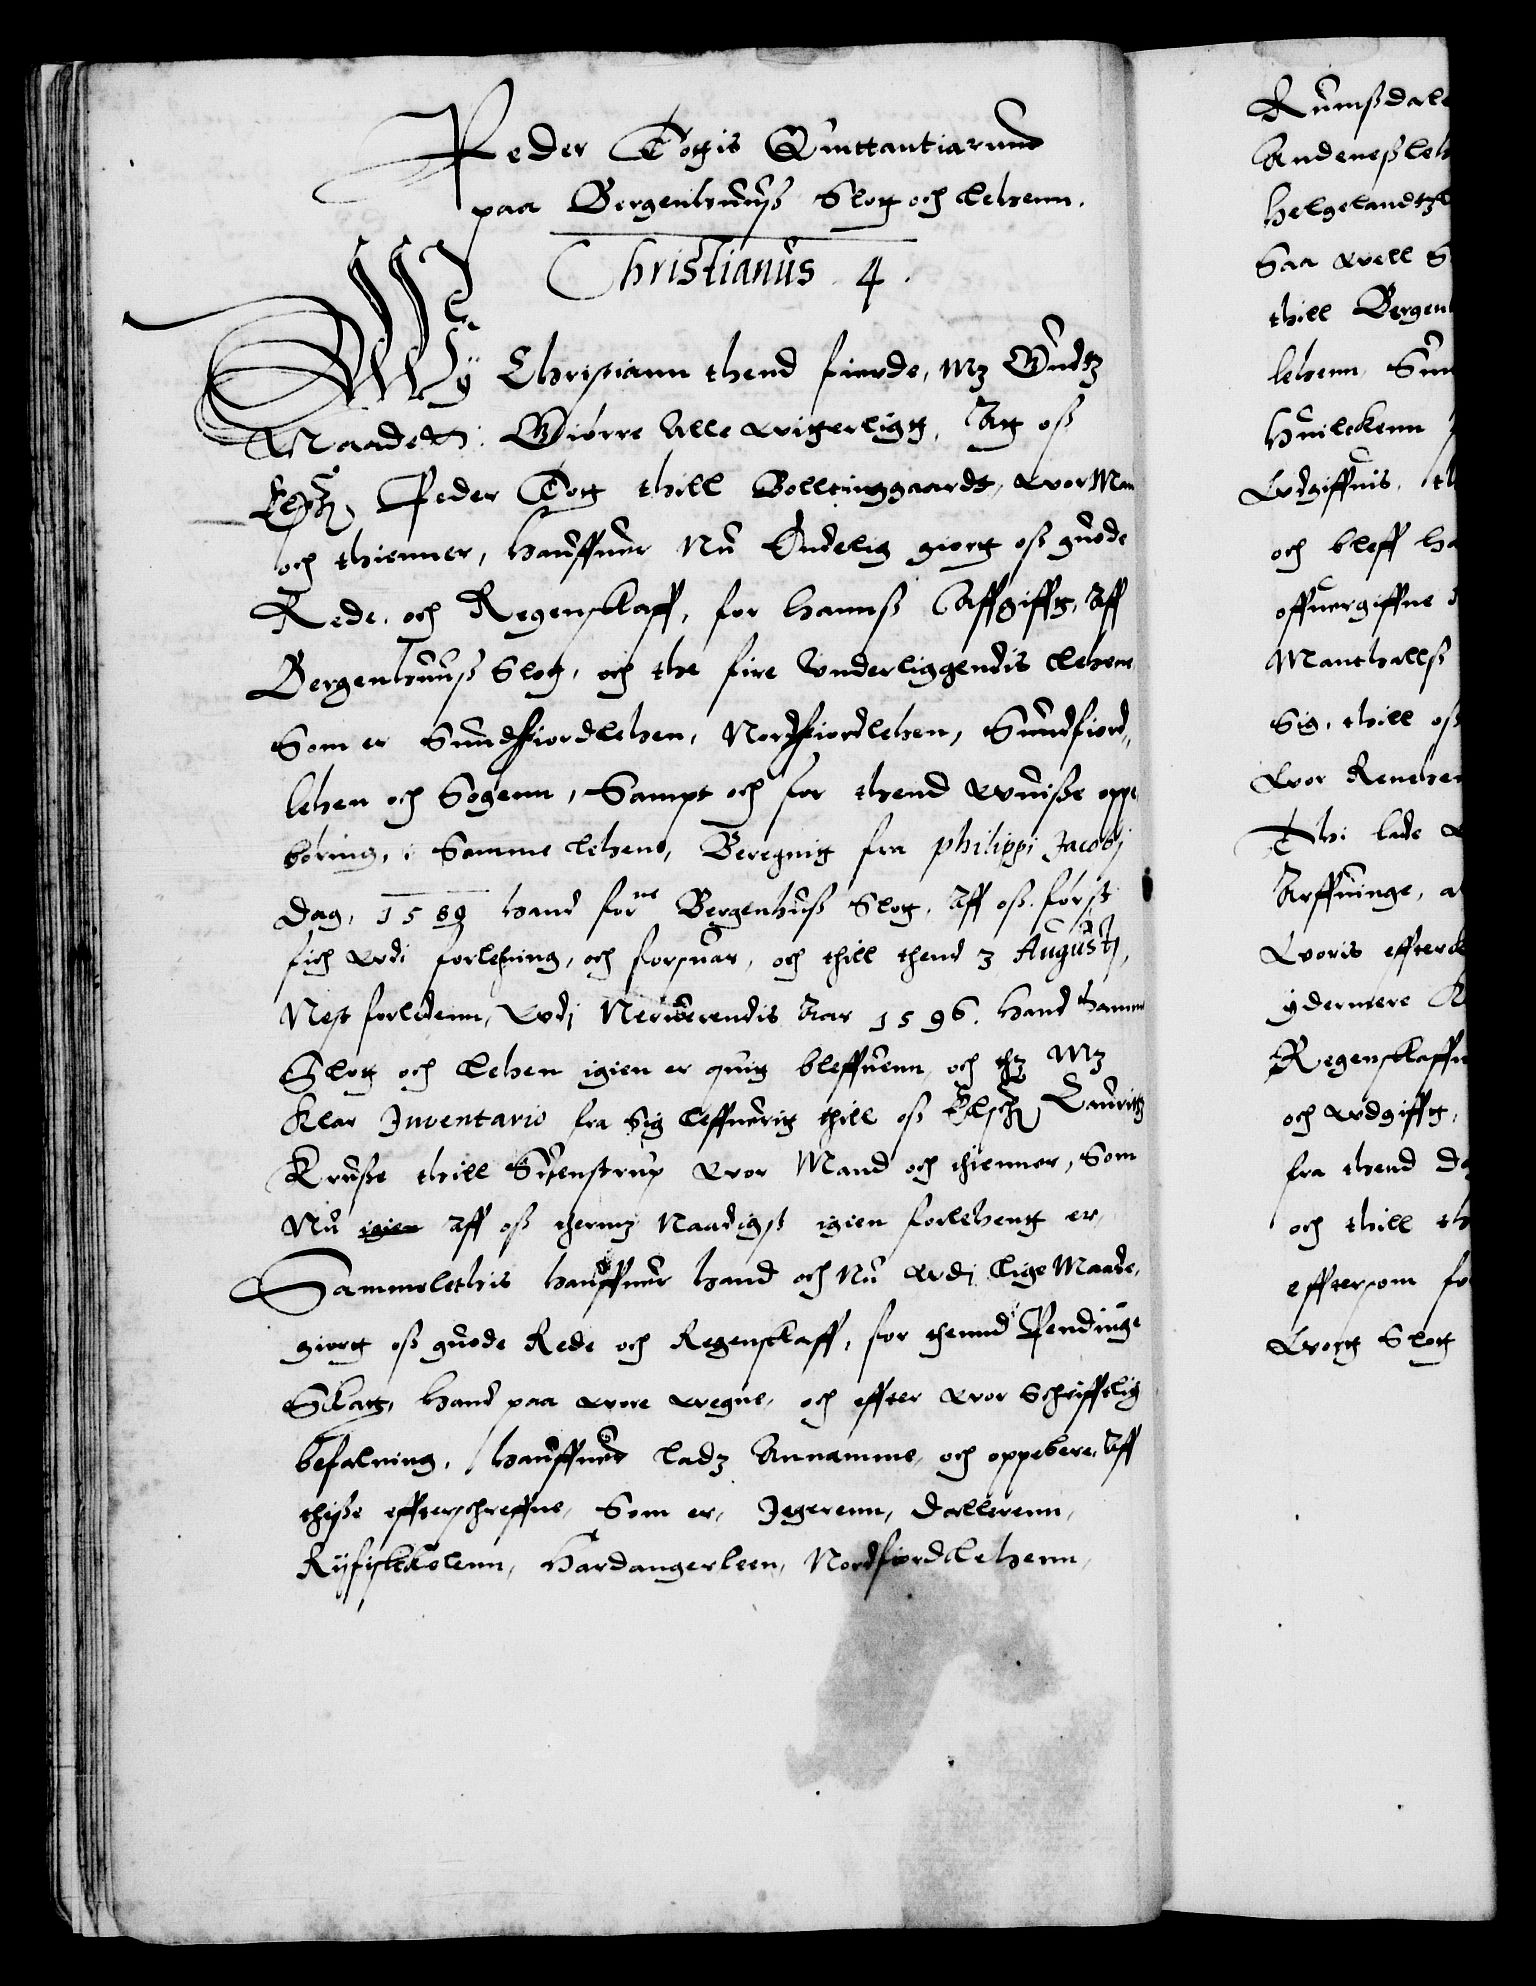 Peder Togis Quittantiarum
paa Bergenhuuß Slott och Lehenn.
Christianus 4.
Wy Christiann thend fierde, mz Gudtz
Naade etc. Giørre Alle witterligtt, Att oß
Elsch. Peder Tott thill Bolltinggaardt, wor Man
och thienner, haffuer Nu Endelig giortt oß guode
Rede, och Regenskaff, for hannß Affgifft, Aff
Bergenhuuß Slott, och the fire Underliggendis Lehenn
Som er Sundfiordlehen, Nordfiordlehen, Sundfiord,,
lehen och Sogenn, Sampt och for thend wuiße oppe
børing, i Samme Lehene, Beregnit fra Philippi Jacobj
dag, 1589 hand forne Bergenhuß Slott, Aff oß først
fich wdi forlehning, och forsuar, och thill thend 3 Augustj,
Nest forledenn, wdj Nerwerendis Aar 1596. hand samme
Slott och Lehen igien er quit bleffuenn, och thz Mz
Klar Inventario fra Sig Leffuerit thill oß Elsch. Lauritz
Kruße thill Suenstrup wor Mand och thienner, Som
Nu igien Aff oß thermz Naadigst igien forlehentt er,
Sammeledhis haffuer hand och Nu wdj Lige Maade,
giortt oß guode Rede och Regenskaff, for thennd Pendinge
Skatt, hand paa wore wegne, och effter wor Schrifftlig
befalning, haffuer Ladz Annamme, och oppebere, Aff
thiße effterschreffne, Som er, Jegerenn, Dallerenn,
Ryfiskkelenn, Hardangerleen, Nordfiordlehenn,
Rumßdale
Andeneßleh
Helgelandtzl
Saa well S
thill Bergen
lehenn, Sun
Huilckenn
Wdgiffuis, th
och bleff ha
offuergiffne
Manthallß
Sig, thill oß
wor Renthe
Thi lade
Arffuinge, a
Woris effterk
ydermere
Regenskaff
och wdgifft,
fra thend da
och thill th
efftersom fo
wortt Slott